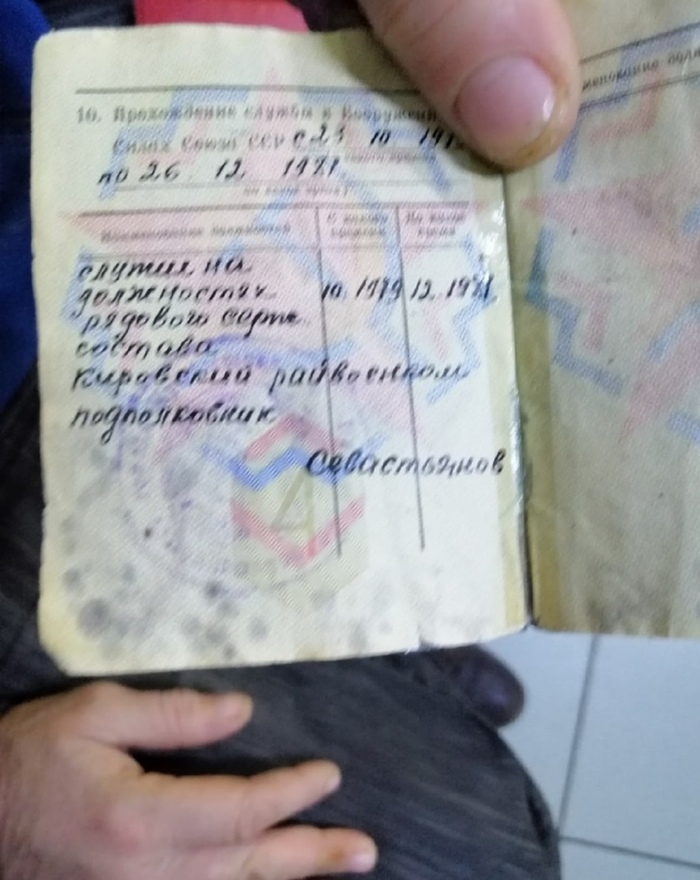 10. Прохождение службы в Вооружен
Силах Союза ССР с 23 10 197
по 26. 12. 1981.
Наименование должностей
С какого времени
По какое время
служил на
должностях 10. 1979 12. 1981
рядового серж.
состава
Кировский райвоенком
подполковник
Севастьянов